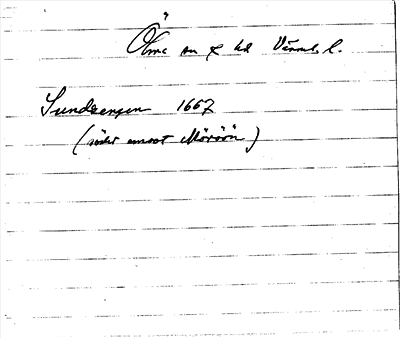 Ölme sn o hd Värml. l.
Sundsengen 1667
(rakt emot Mörön)